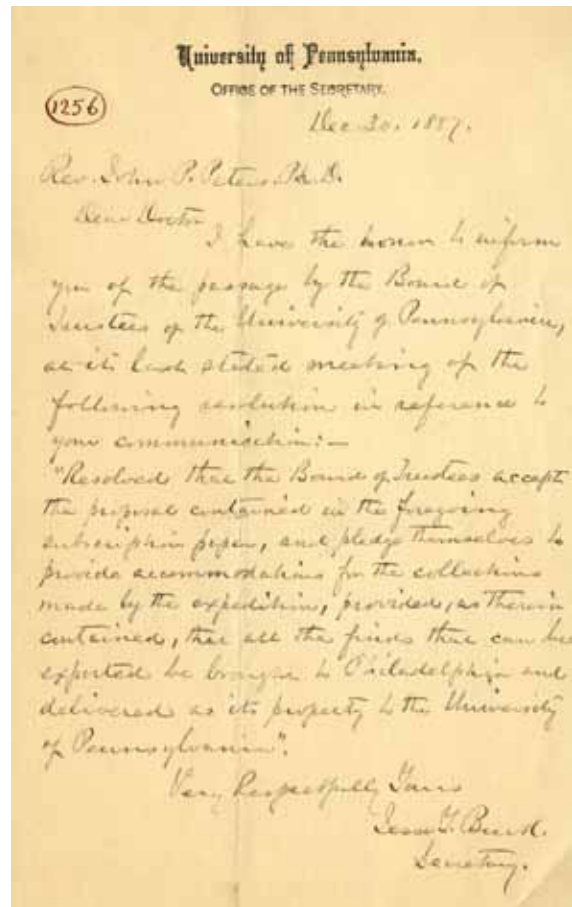 University of Pennsylvania.
OFFICE OF THE SECRETARY.
1256
Dec 20. 1887.
Rev. John P. Peters. Ph.D.
Dear Doctor
I have the honor to inform
you of the passage by the Board of
Trustees of the University of Pennsylvania,
at its last stated meeting of the
following resolution in reference to
your communication:—
"Resolved that the Board of Trustees accept
the proposal contained in the foregoing
subscription paper, and pledge themselves to
provide accommodations for the collections
made by the expedition, provided, as therein
contained, that all the finds that can be
exported be brought to Philadelphia and
delivered as its property to the University
of Pennsylvania".
Very Respectfully Yours
Jesse Y. Burk.
Secretary.